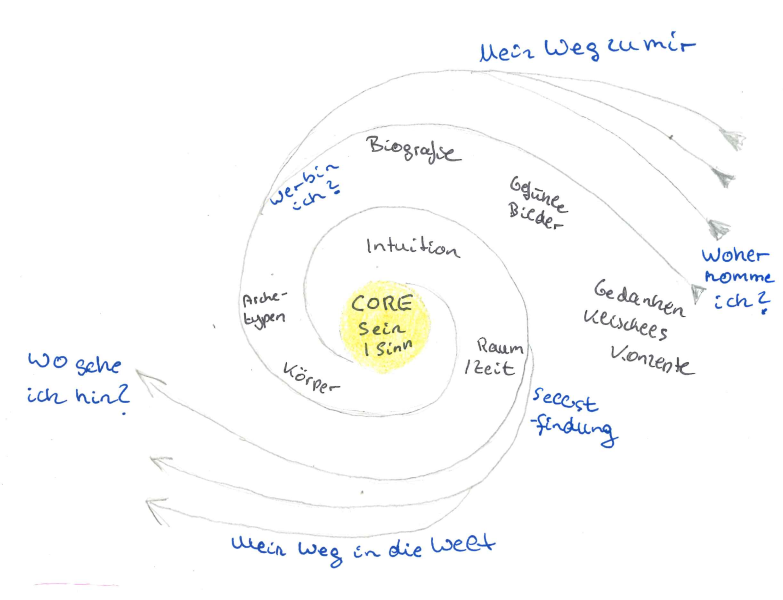 Mein Weg zu mir
Biografie
Wer bin
ich?
Gefühle
Bilder
Intuition
Woher
komme
ich?
CORE
Sein
/ Sinn
Arche-
typen
Gedanken
Klischees
Konzepte
Raum
/Zeit
Körper
Wo gehe
ich hin?
Selbst
-findung
Mein Weg in die Welt